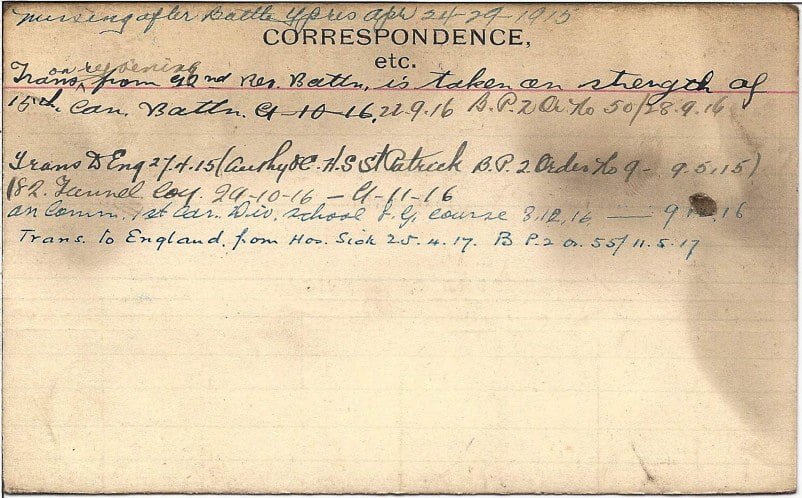 missing after Battle Ypres Apr 24-29-1915
CORRESPONDENCE,
etc.
on reopening
Trans, from 92nd Res. Battn, is taken on strength of
15th Can. Battn. 9-10-16, 22.9.16 B.P.2 Or. No 50/28.9.16
Trans D Eng 27.4.15 (Authy H.S St Patrick B.P. 2 Order No 9- 9.5.15)
182. Tunnel Coy. 29-10-16 - 9-11-16
on Comm. 1st Can. Div. School L.G. Course 3.12.16 — 9 .16
Trans. to England. from Hos. Sick 25.4.17. B P.2 Or. 55/11.5.17